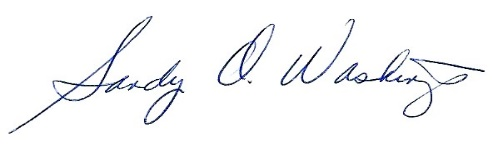 Sandy O. Washington